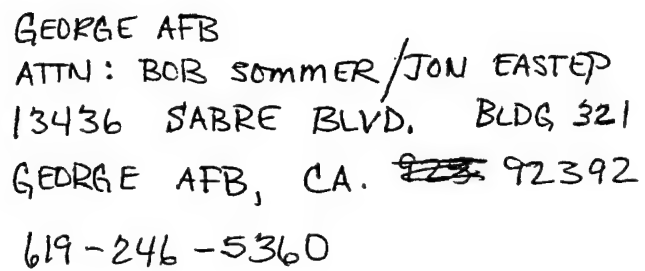 GEORGE AFB
ATTN: BOB SOMMER/JON EASTEP
13436 SABRE BLVD. BLDG 321
GEORGE AFB, CA. 92392
619-246-5360